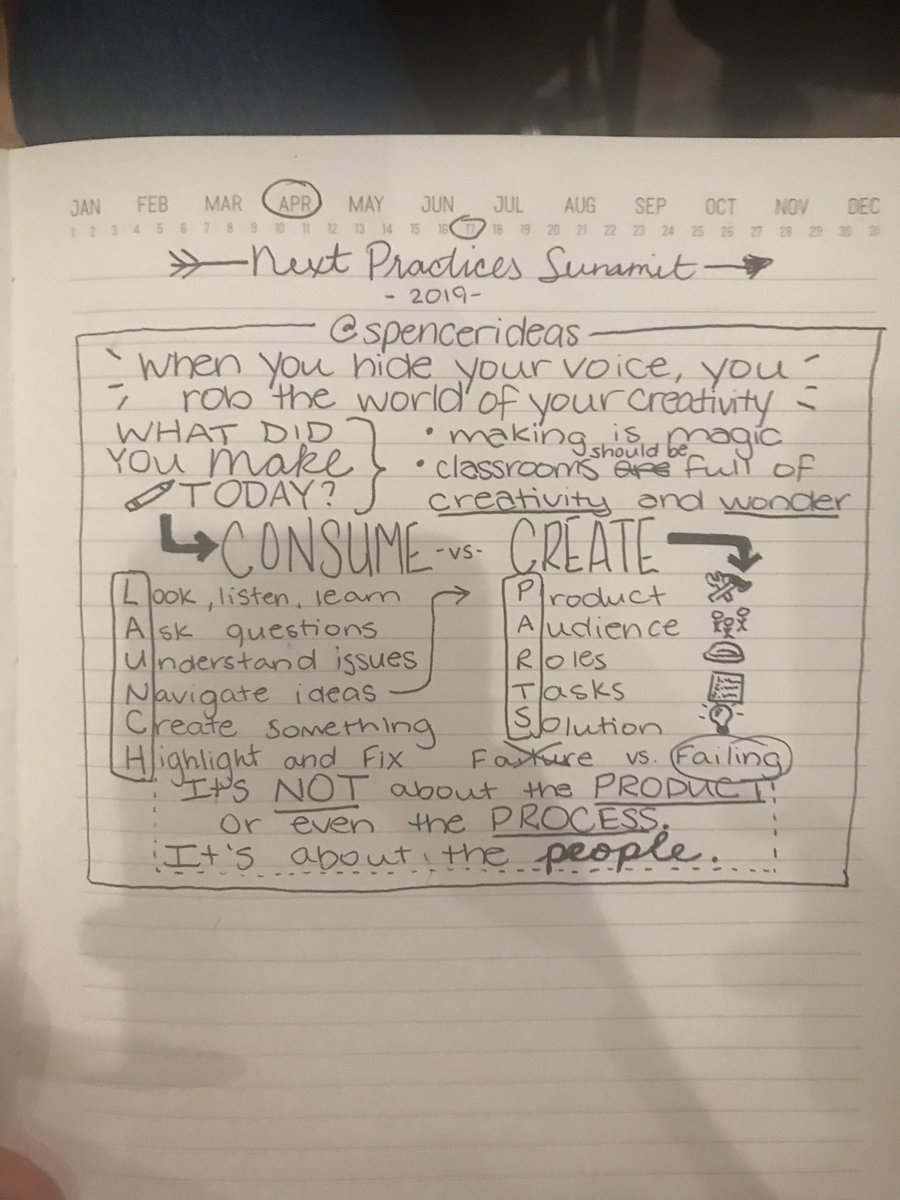 JAN FEB MAR APR MAY JUN JUL AUG SEP OCT NOV DEC
1 2 3 4 5 6 7 8 9 10 11 12 13 14 15 16 17 18 19 20 21 22 23 24 25 26 27 28 29 30 31
Next Practices Summit
- 2019 -
@spencerideas
When you hide your voice, you
rob the world of your creativity
WHAT DID
YOU make
TODAY?
• making is magic
should be
• classrooms are full of
creativity and wonder
CONSUME -vs- CREATE
Look, listen, learn
Ask questions
Understand issues
Navigate ideas
Create something
Highlight and Fix
Product
Audience
Roles
Tasks
Solution
Failure vs. Failing
It's NOT about the PRODUCT
Or even the PROCESS.
It's about the people.